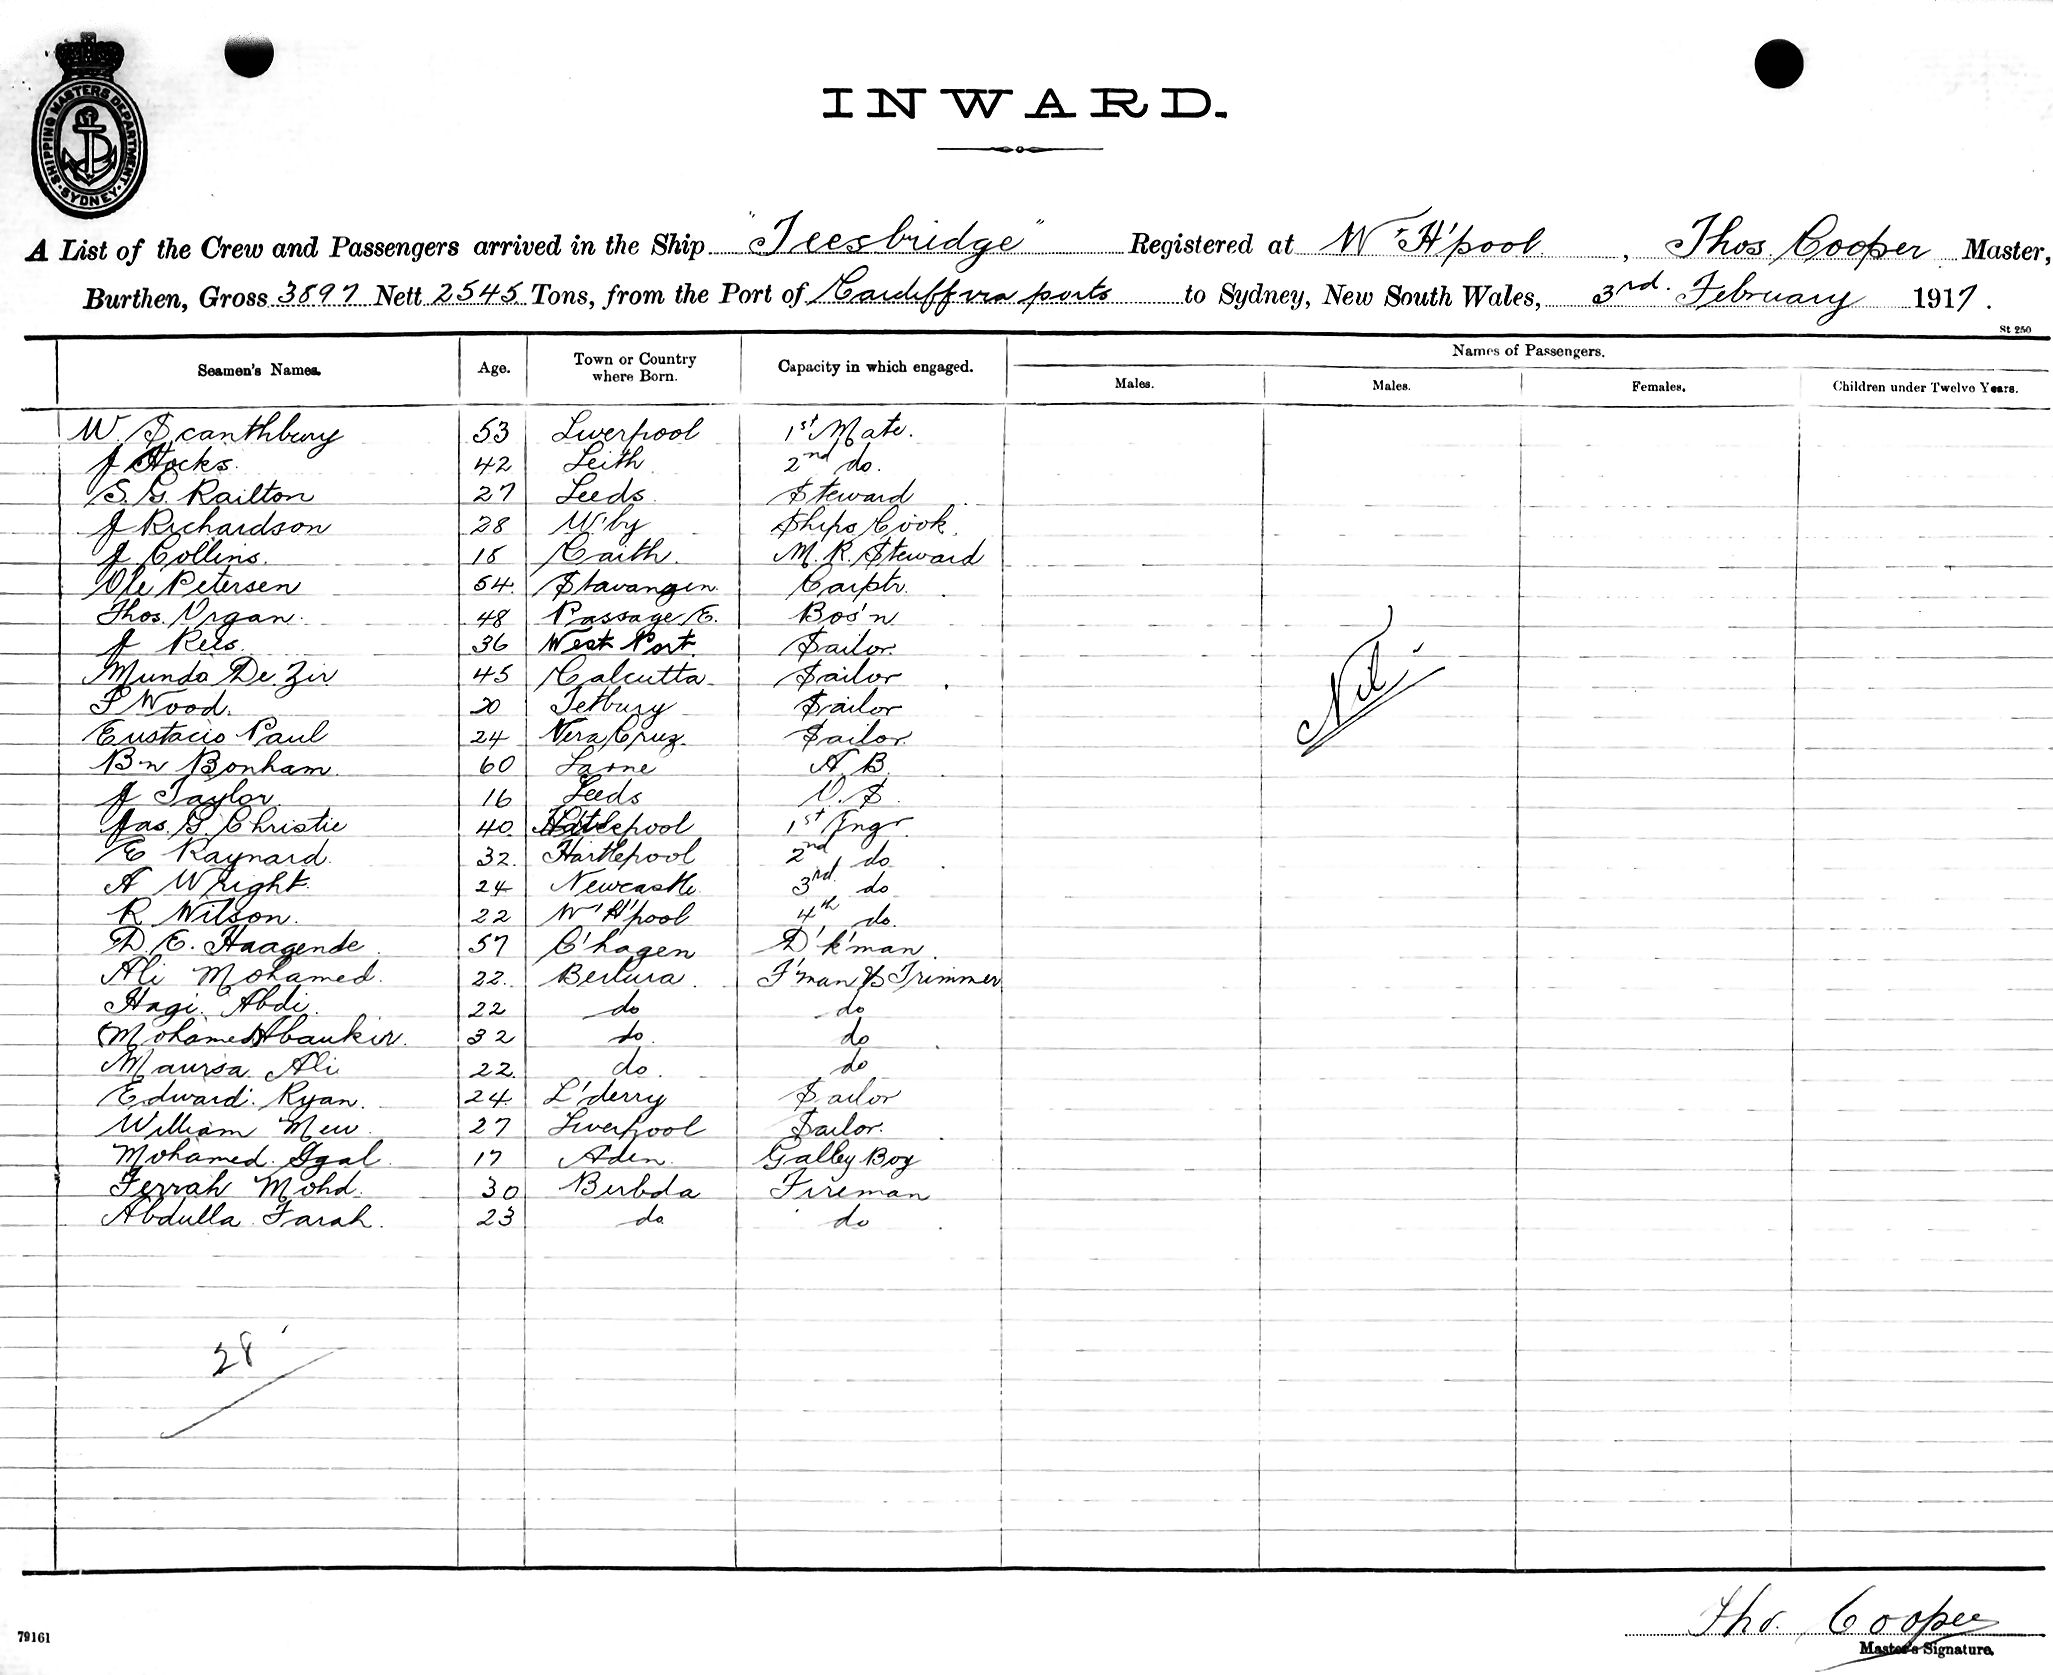 SHIPPING MASTERS DEPARTMENT. SYDNEY.
INWARD.
A List of the Crew and Passengers arrived in the Ship "Teesbridge" Registered at W. H'pool, Thos. Cooper Master,
Burthen, Gross 3897 Nett 2545 Tons, from the Port of Cardiff via ports to Sydney, New South Wales, 3rd. February 1917.
St 250
Seamen's Names. Age. Town or Country where Born. Capacity in which engaged. Names of Passengers.
Males. Males. Females. Children under Twelve Years.
W. Scanthbury 53 Liverpool 1st Mate.
J Hocks. 42 Leith 2nd do.
S. G. Railton 27 Leeds. Steward
J Richardson 28 W'by Ships Cook.
J Collins. 18 Caith. M. R. Steward
Ole Petersen 54. Stavangen. Carptr.
Thos. Organ. 48 Passage E. Bos'n
J Rees. 36 West Port. Sailor.
Munda De Zir 45 Calcutta. Sailor
Wood. 20 Tetbury Sailor
Eustacio Paul 24 Vera Cruz. Sailor.
B'n Bonham. 60 Larne A. B.
J Taylor. 16 Leeds O. S.
Jas. G. Christie 40. Hartlepool 1st Engr.
E Raynard. 32. Hartlepool 2nd do
A Wright. 24 Newcastle. 3rd. do
R Wilson. 22 W' H'pool 4th do.
D. E. Haagende 57 C'hagen D'k'man.
Ali Mohamed. 22. Berbera. F'man & Trimmer
Hagi. Abdi. 22 do do
Mohamed Abaukir. 32 do. do
Maursa Ali 22. do. do
Edward. Ryan. 24. L'derry Sailor
William Mew. 27 Liverpool Sailor.
Mohamed. Igal. 17 Aden. Galley Boy
Ferrah Mohd. 30 Berbda Fireman
Abdulla Farah. 23 do. do
Nil.
28
Tho. Cooper
Master's Signature.
79161